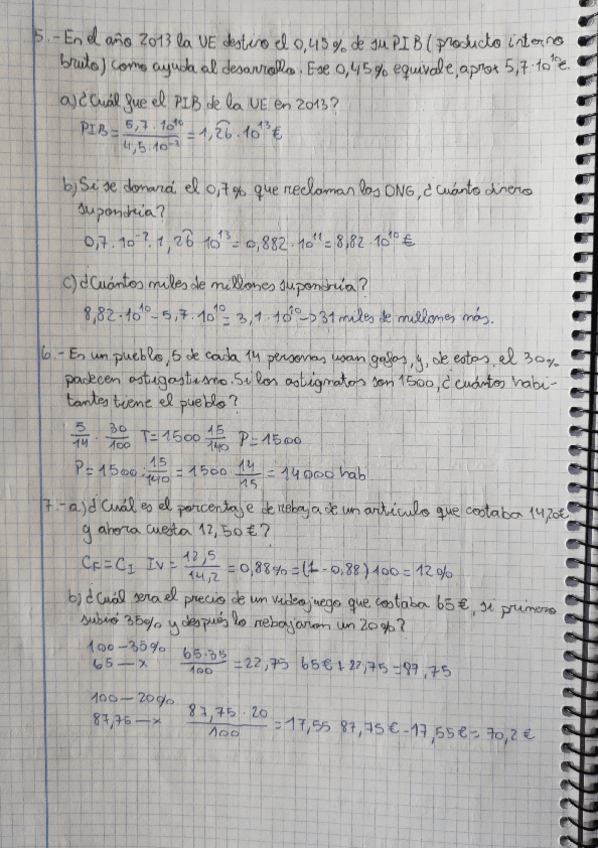 5.-En el año 2013 la UE destino el 0,45% de su PIB (producto interno
bruto) como ayuda al desarrollo. Ese 0,45% equivale, aprox 5,7·10¹⁰€.
a)¿Cuál fue el PIB de la UE en 2013?
PIB = 5,7·10¹⁰ / 4,5·10⁻³ = 1,26·10¹³€
b) Si se donará el 0,7% que reclaman las ONG, ¿cuánto dinero
supondría?
0,7·10⁻²·1,26·10¹³ = 0,882·10¹¹ = 8,82·10¹⁰€
c)¿Cuántos miles de millones supondría?
8,82·10¹⁰-5,7·10¹⁰= 3,1·10¹⁰→31 miles de millones más.
6.-En un pueblo, 5 de cada 14 personas usan gafas, y, de estas, el 30%
padecen astigastismo. Si los astigmatos son 1500, ¿cuántos habi-
tantes tiene el pueblo?
5/14 · 30/100 T=1500 15/140 P=1500
P=1500:15/140 = 1500·14/15 = 14000 hab
7.-a)¿Cuál es el porcentaje de rebaja de un artículo que costaba 14,20€
y ahora cuesta 12,50€?
CF=CI IV= 12,5/14,2 = 0,88% = (1-0,88)100 = 12%
b)¿Cuál sera el precio de un videojuego que costaba 65€, si primero
subió 35% y después lo rebajaron un 20%?
100-35%
65-x 65·35/100 = 22,75 65€+22,75=87,75
100-20%
87,75-x 87,75·20/100 = 17,55 87,75€-17,55€= 70,2€